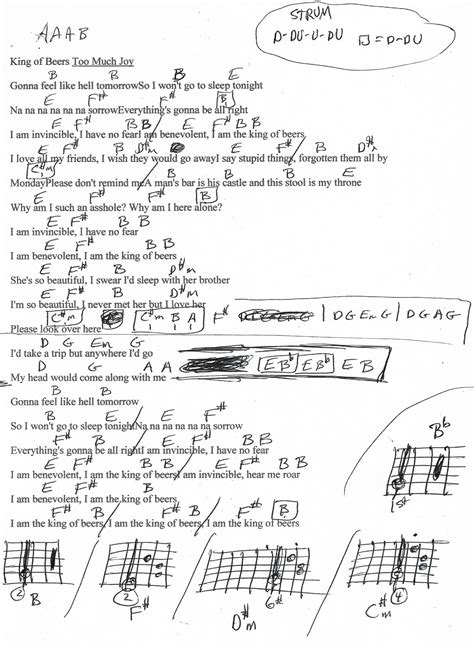 AAAB
STRUM
D-DU-U-DU □ = D-DU
King of Beers Too Much Joy
B B B E
Gonna feel like hell tomorrowSo I won't go to sleep tonight
E F# B
Na na na na na na sorrowEverything's gonna be all right
E F# B B E F# B B
I am invincible, I have no fearI am benevolent, I am the king of beers
E F# B D#m E F# B D#m
I love all my friends, I wish they would go awayI say stupid things, forgotten them all by
C#m
MondayPlease don't remind meA man's bar is his castle and this stool is my throne
E F# B
Why am I such an asshole? Why am I here alone?
E F# B B
I am invincible, I have no fear
E F# B B
I am benevolent, I am the king of beers
E F# B D#m
She's so beautiful, I swear I'd sleep with her brother
E F# B D#m
I'm so beautiful, I never met her but I love her
C#m C#m B A F# | D G Em G | D G A G
Please look over here
D G Em G
I'd take a trip but anywhere I'd go
D G A A E Bb E Bb E B
My head would come along with me
B B
Gonna feel like hell tomorrow
B E E F#
So I won't go to sleep tonightNa na na na na na sorrow
F# B E F# B B
Everything's gonna be all rightI am invincible, I have no fear
E F# B B E F# B B
I am benevolent, I am the king of beersI am invincible, hear me roar
E F# B
I am benevolent, I am the king of beers
E F# B B E F# B
I am the king of beers, I am the king of beers, I am the king of beers
Bb
1st
2 B
2 F#
D#m 6#
C#m 4